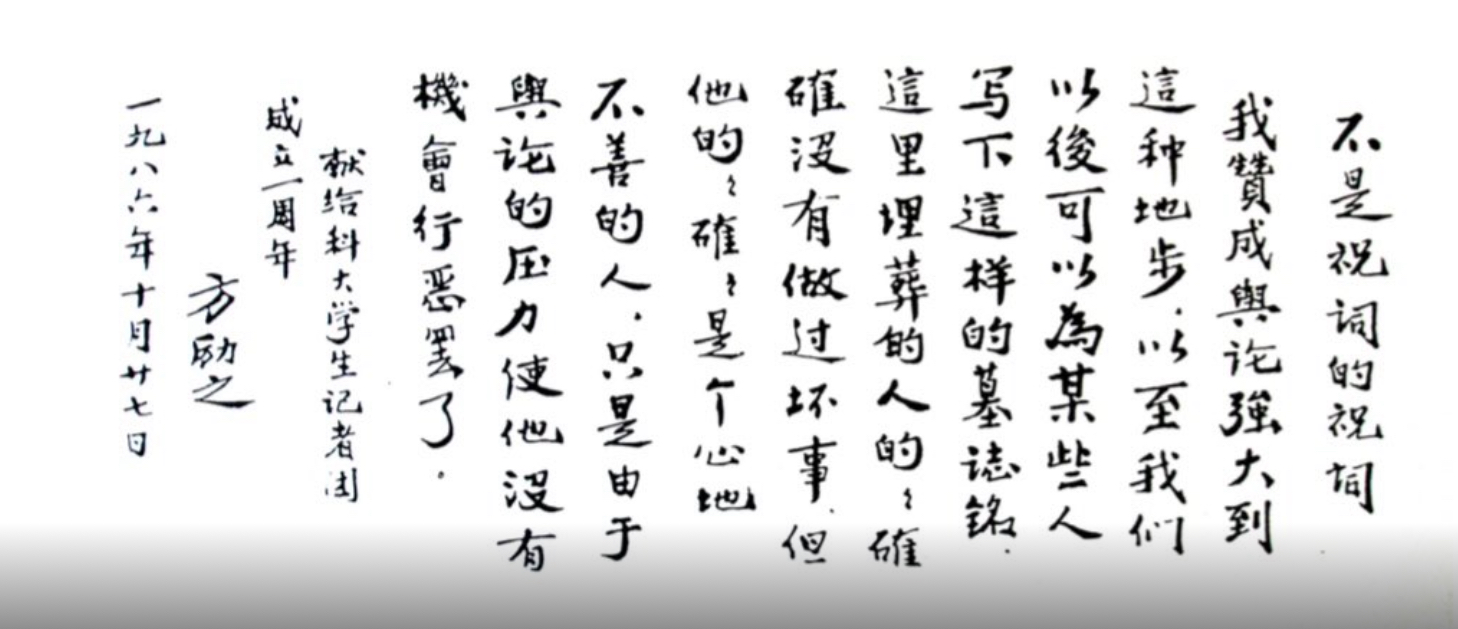 不是祝词的祝词
我贊成輿论強大到
這种地步,以至我们
以後可以為某些人
写下這样的墓誌銘.
這里埋葬的人的〻確
確没有做过坏事,但
他的〻確〻是个心地
不善的人,只是由于
輿论的压力使他没有
機會行恶罢了.
献给科大学生记者团
成立一周年
方励之
一九八六年十月廿七日